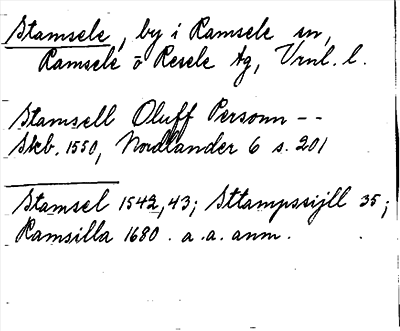 Stamsele, by i Ramsele sn,
Ramsele o Resele tg, Vrnl. l.
Stamsell Oluff Personn --
Skb. 1550, Nordlander 6 s. 201
Stamsel 1542, 43; Sttampssijll 35;
Ramsilla 1680 . a. a. anm.